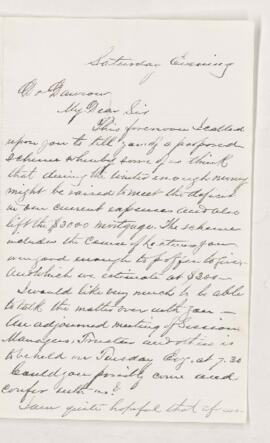 Saturday Evening
Dr Dawson
My Dear Sir
This forenoon I called
upon you to tell you of a proposed
scheme whereby some of us think
that during the winter enough money
might be raised to meet the deficit
in our current expenses and also
lift the $3000 mortgage. The scheme
includes the Course of Lectures you
were good enough to offer to give
and which we estimate at $200—
I would like very much to be able
to talk the matter over with you—
An adjourned meeting of Session
Managers, Trustees and others is
to be held on Tuesday Evg. at 7.30
Could you possibly come and
confer with us?
I am quite hopeful that if we